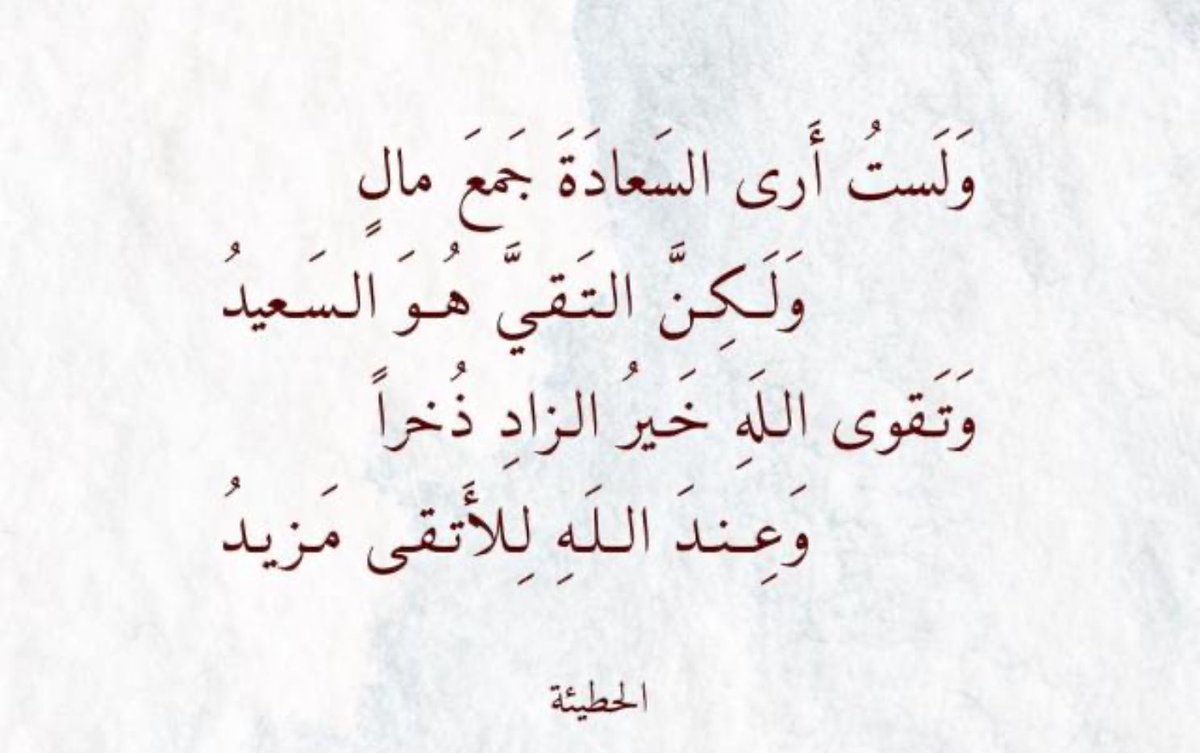 وَلَستُ أَرى السَعادَةَ جَمعَ مالٍ
وَلَكِنَّ التَقيَّ هُوَ السَعيدُ
وَتَقوى اللَهِ خَيرُ الزادِ ذُخراً
وَعِندَ اللَهِ لِلأَتقى مَزيدُ
الحطيئة